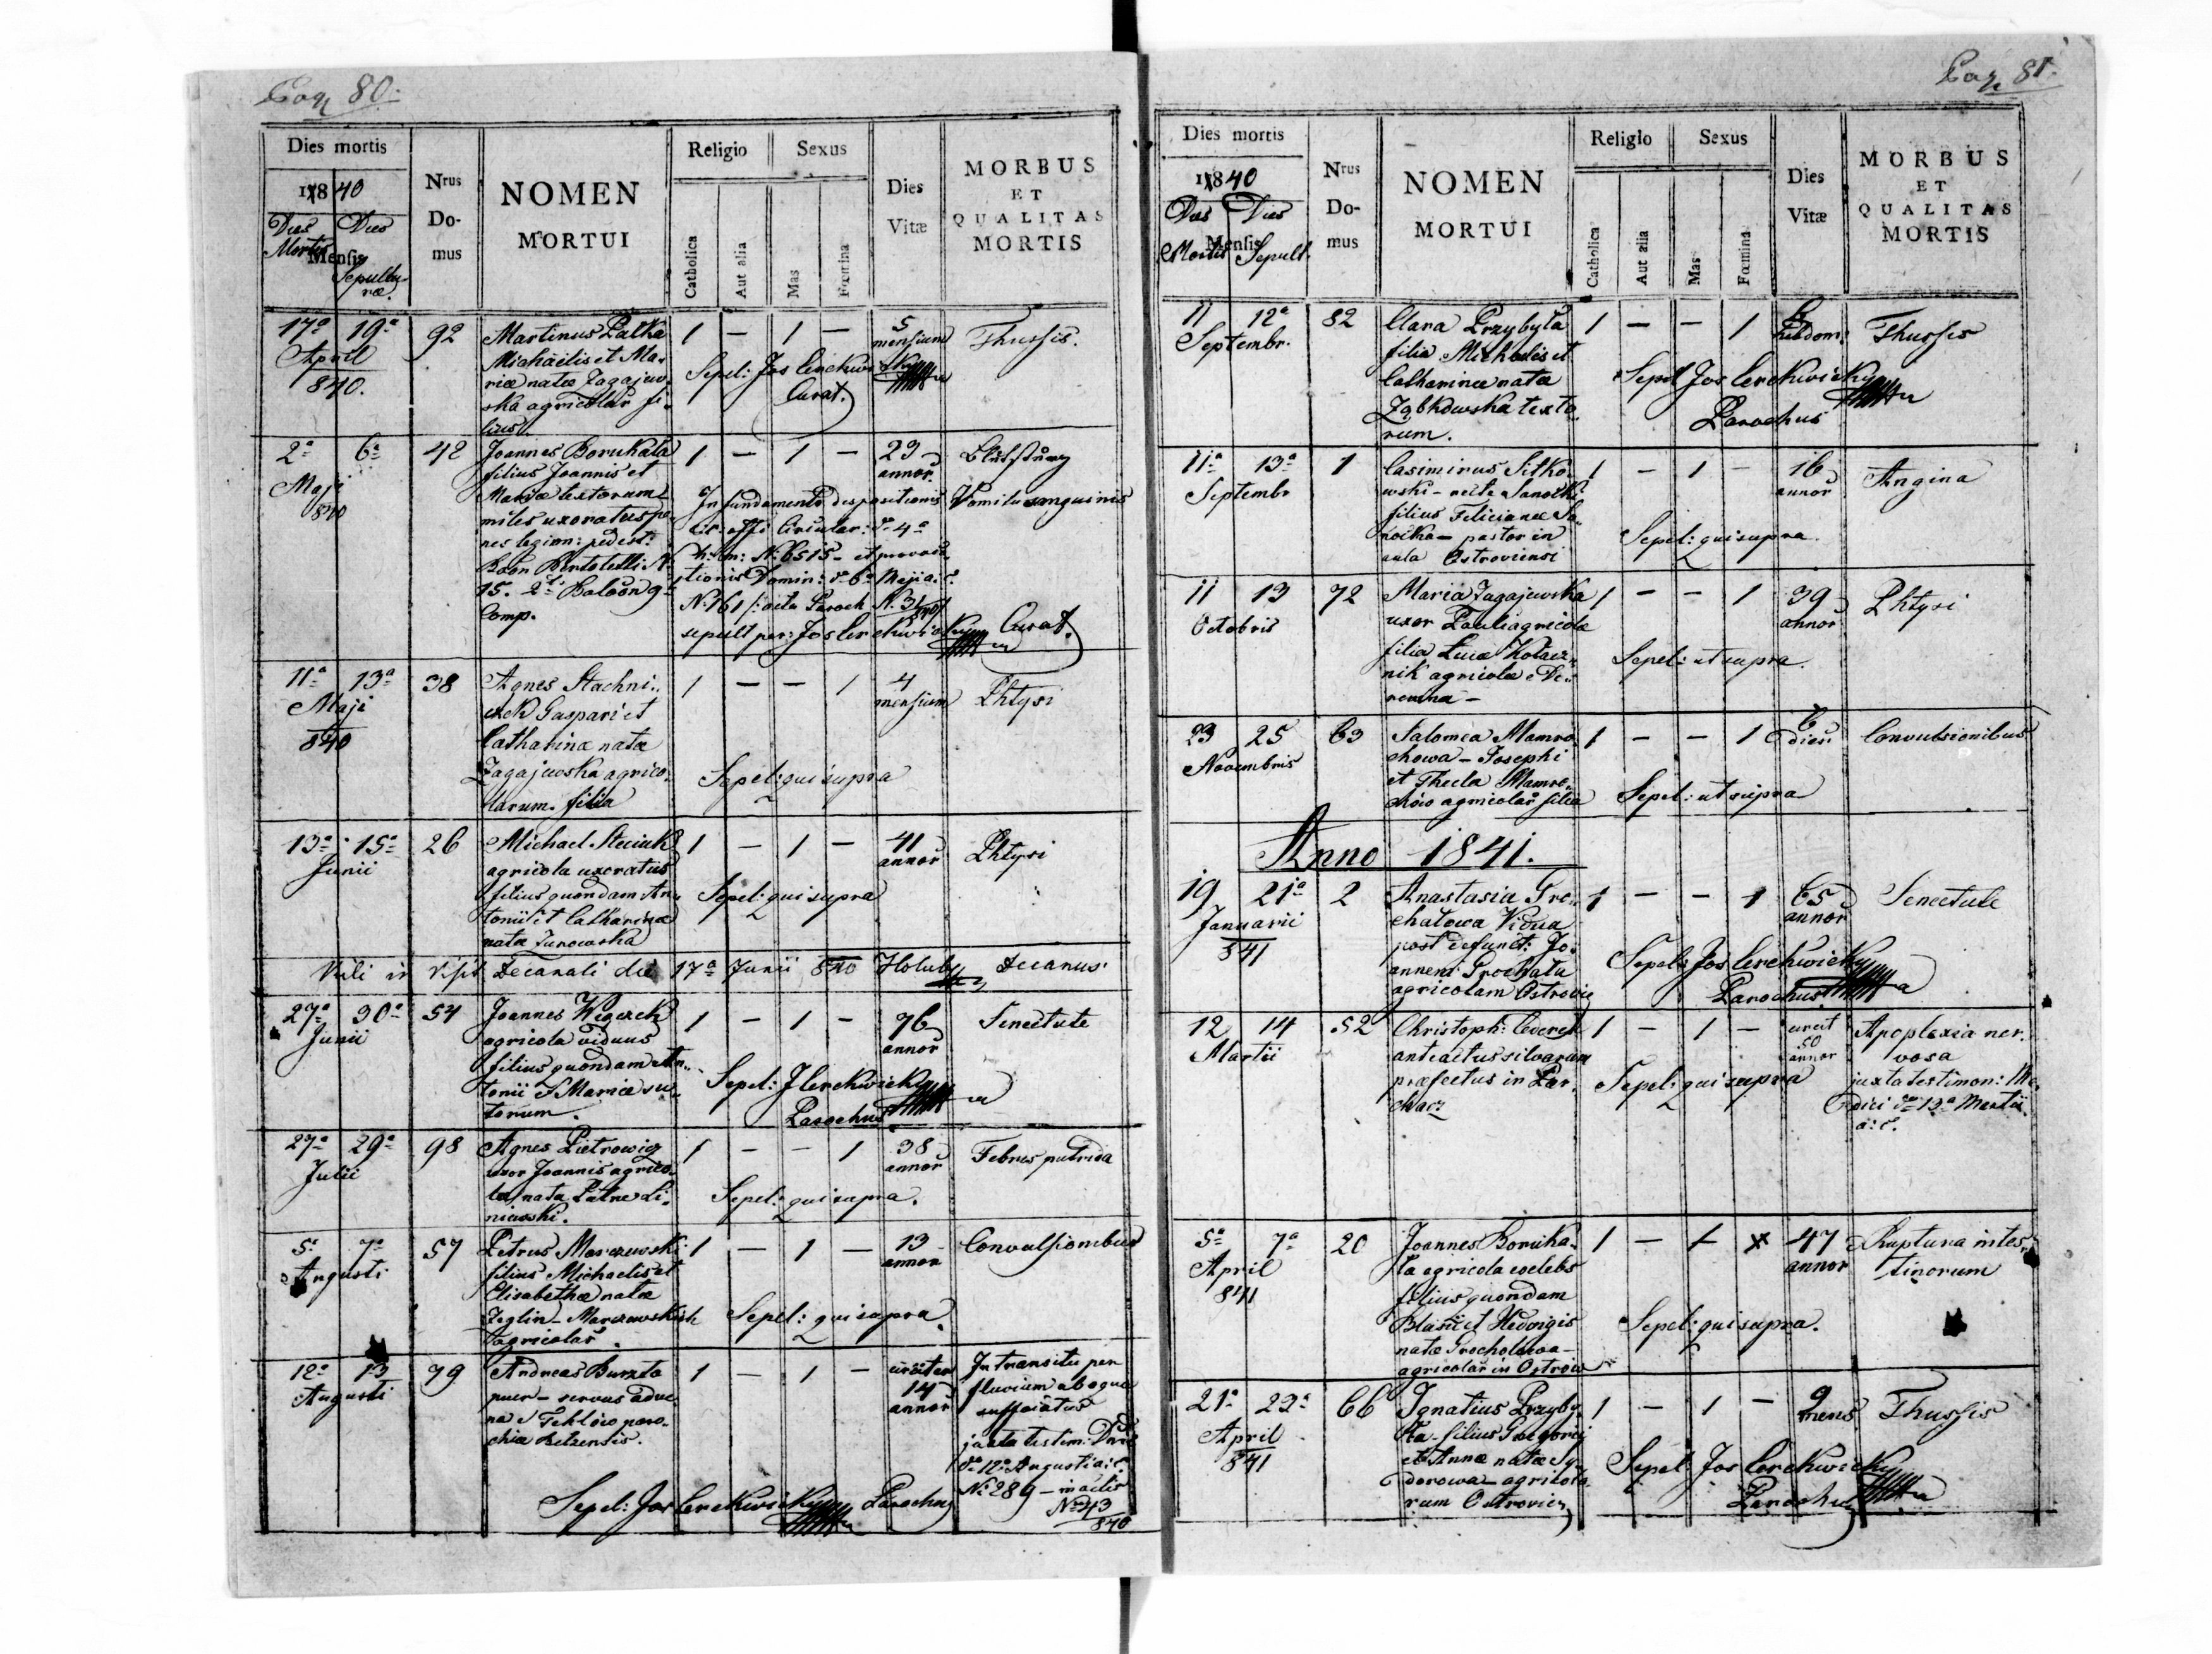 Pag 80.
Dies mortis
1840
Dies Mortis
Dies Sepultu-
ræ.
Mensis
Nrus
Do-
mus
NOMEN
MORTUI
Religio
Catholica
Aut alia
Sexus
Mas
Fœmina
Dies
Vitæ
MORBUS
ET
QUALITAS
MORTIS
17a 19a
April
840.
92
Martinus Patka
Michaelis et Ma-
riæ natæ Zagajew-
ska agricolar fi-
lius.
1 — 1 —
5
mensium
Thussis.
Sepel: Jos Cerekwicky
Curat.
2a 6a
Maji
840
42
Joannes Boruchała
filius Joannis et
Mariæ textorum
miles uxoratus pe-
nes legion: pedest:
Baon Bertoletti N
15. 2di Baloon 9a
Comp.
1 — 1 —
29
annor
Blutsturz
Vomitu sanguinis
In fundamento dispositionis
C.R. offi Circular: do 4a
h: m: N: 6515 - et provoca-
tionis Domin: do 6a Maji a: c.
N: 161 /: acta Paroch N. 31
sepult per: Jos Cerekwicky Curat.
11a 13a
Maji
840
38
Agnes Stachni-
czek Gaspari et
Catharina nata
Zagajewska agrico-
larum filia
1 — — 1
4
mensium
Phtysi
Sepel: qui supra
13a 15a
Junii
26
Michael Steciuk
agricola uxoratus
filius quondam An-
tonii et Catharina
nata Turowska
1 — 1 —
41
annor
Phtysi
Sepel: qui supra
Vidi in Visit Decanali die 17a Junii 840 Holuby Decanus
27a 30a
Junii
54
Joannes Węgrzek
agricola viduus
filius quondam An-
tonii et Mariæ su-
torum.
1 — 1 —
76
annor
Senectute
Sepel: J Cerekwicky
Parochus
27a 29a
Julii
98
Agnes Pietrowicz
uxor Joannis agrico-
læ nata Patre Li-
niewski.
1 — — 1
38
annor
Febris putrida
Sepel: qui supra.
5a 7a
Augusti
57
Petrus Marczewski
filius Michaelis et
Elisabethæ natæ
Zeglin - Marczewskich
agricolar.
1 — 1 —
13
annor
Convulsionibus
Sepel: qui supra.
12a 13
Augusti
79
Andreas Burzta
puer - servus adve-
na e Tehlów paro-
chiæ Belzensis.
1 — 1 —
circiter
14
annor
In transitu per
fluvium ab aqua
suffocatus
juxta testim: Domi
do 12a Augusti a: c.
N: 289 - in actis
Nro 43
840
Sepel: Jos Cerekwicky Parochus
Pag 81.
Dies mortis
1840
Dies Mortis
Dies Sepult.
Mensis
Nrus
Do-
mus
NOMEN
MORTUI
Religio
Catholica
Aut alia
Sexus
Mas
Fœmina
Dies
Vitæ
MORBUS
ET
QUALITAS
MORTIS
11 12a
Septembr.
82
Clara Przybyła
filia Michaelis et
Catharinæ natæ
Ząbkowska texto-
rum.
1 — — 1
hebdom:
Thussis
Sepel Jos Cerekwicky
Parochus
11a 13a
Septembr
1
Casimirus Sitko-
wski - recte Sanocki
filius Felicianæ Sa-
nocka - pastor in
aula Ostroviensi
1 — 1 —
16
annor
Angina
Sepel: qui supra.
11 13
Octobris
72
Maria Zagajewska
uxor Pauli agricolæ
filia Lucæ Kołacz-
nik agricolæ e De-
rewna —
1 — — 1
39
annor
Phtysi
Sepel: ut supra.
23 25
Novembris
63
Salomea Mamro-
chowa - Josephi
et Thecla Mamro-
chów agricolar filia
1 — — 1
6
dier:
Convulsionibus
Sepel: ut supra
Anno 1841.
19 21a
Januarii
841
2
Anastasia Gro-
chałowa Vidua
post defunct: Jo-
annem Grochała
agricolam Ostrovie
1 — — 1
65
annor
Senectute
Sepel: Jos Cerekwicky
Parochus
12 14
Martii
52
Christoph: Cederek
anteactus silvarum
præfectus in Par-
chacz
1 — 1 —
circit
50
annor
Apoplexia ner-
vosa
juxta testimon: Me-
dici do 13a Martii
a: c.
Sepel: qui supra
5a 7a
April
841
20
Joannes Borucha-
ła agricola coelebs
filius quondam
Blasii et Hedvigis
natæ Grocholowa -
agricolar in Ostrów
1 — 1 x
47
annor
Ruptura intes-
tinorum
Sepel: qui supra.
21a 22a
April
841
66
Ignatius Przyby-
ła - filius Gregorij
et Anna natæ Sy-
dorowa - agricola-
rum Ostrovien
1 — 1 —
9
mens
Thussis
Sepel: Jos Cerekwicky
Parochus